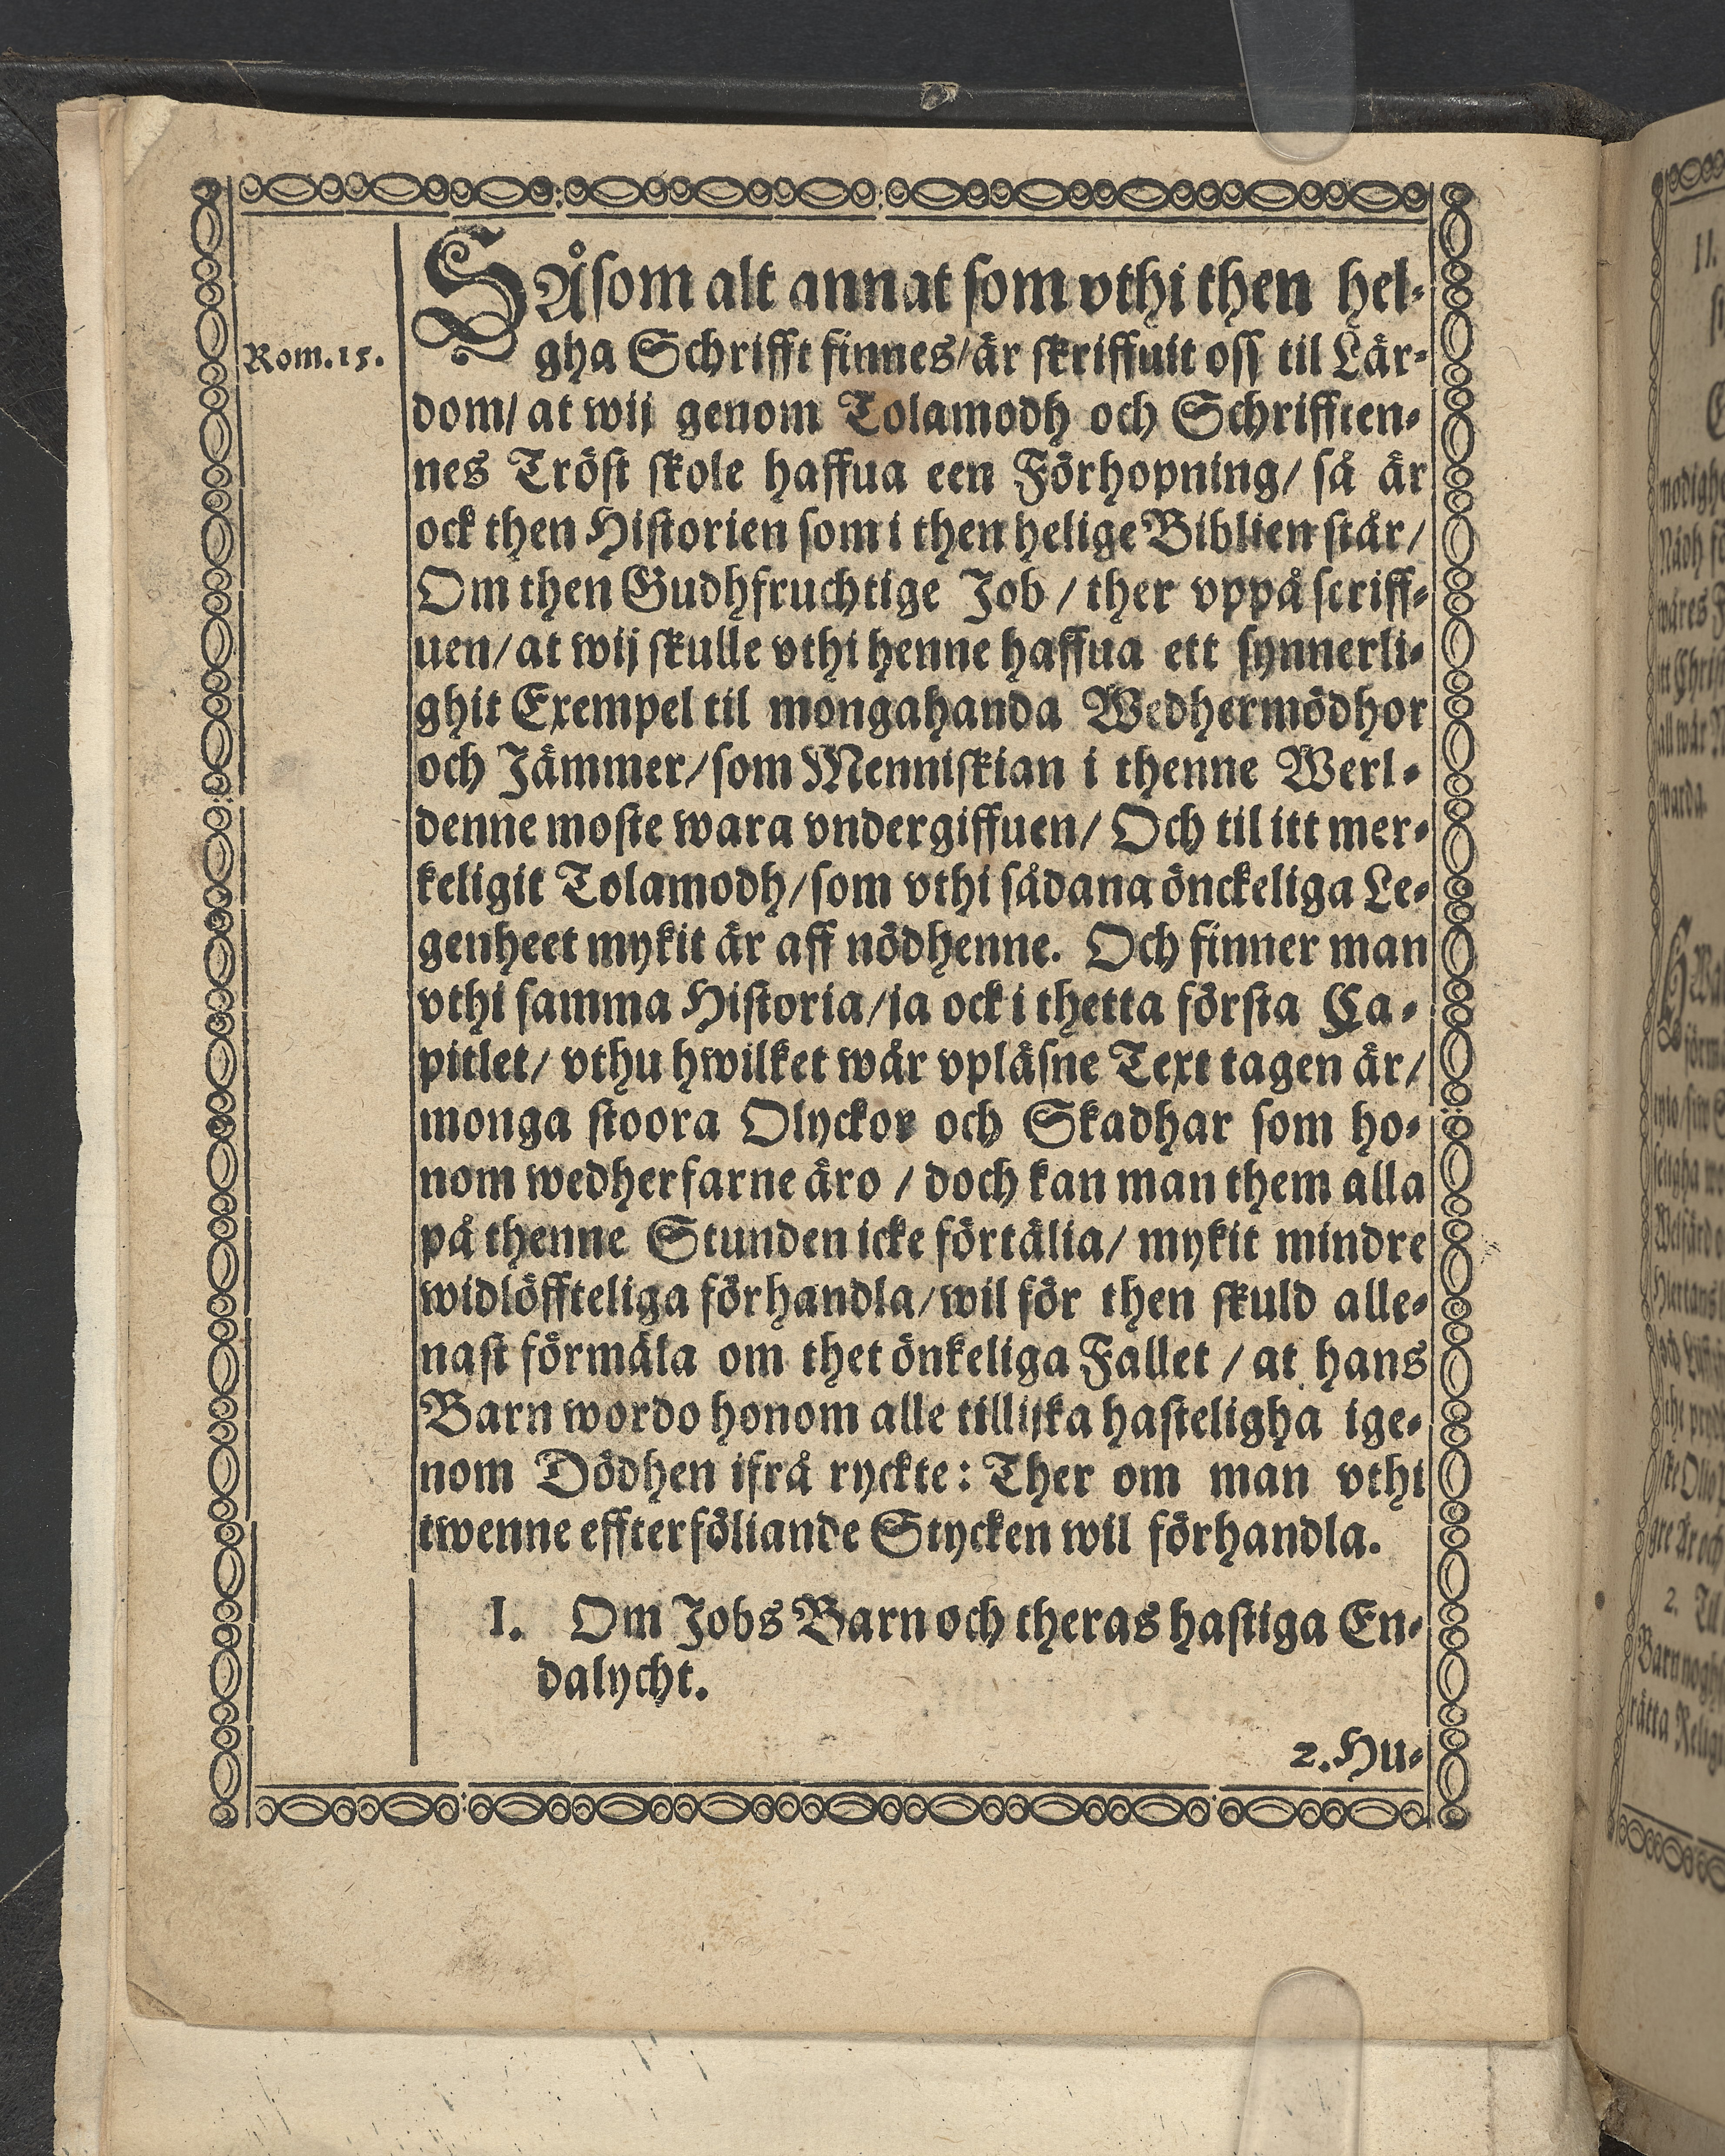 SÅsom alt annat som vthi then hel-
Rom. 15.
gha Schrifft finnes/ är skriffuit oss til Lär-
dom/ at wij genom Tolamodh och Schrifften-
nes Tröst skole haffua een Förhopning/ så är
ock then Historien som i then helige Biblien står/
Om then Gudhfruchtige Job / ther vppå scriff-
uen/ at wij skulle vthi henne haffua ett synnerli-
ghit Exempel til mongahanda Wedhermödhor
och Jämmer/ som Menniskian i thenne Werl-
denne moste wara vndergiffuen/ Och til itt mer-
keligit Tolamodh/ som vthi sådana önckeliga Le-
genheet mykit är aff nödhenne. Och finner man
vthi samma Historia/ ja ock i thetta första Ca-
pitlet/ vthu hwilket wår vpläsne Text tagen är/
monga stoora Olyckor och Skadhar som ho-
nom wedherfarne äro / doch kan man them alla
på thenne Stunden icke förtälia/ mykit mindre
widlöffteliga förhandla/ wil för then skuld alle-
nast förmäla om thet önkeliga Fallet / at hans
Barn wordo honom alle tillijka hasteligha ige-
nom Dödhen ifrå ryckte: Ther om man vthi
twenne effterföliande Stycken wil förhandla.
I. Om Jobs Barn och theras hastiga En-
dalycht.
2. Hu-